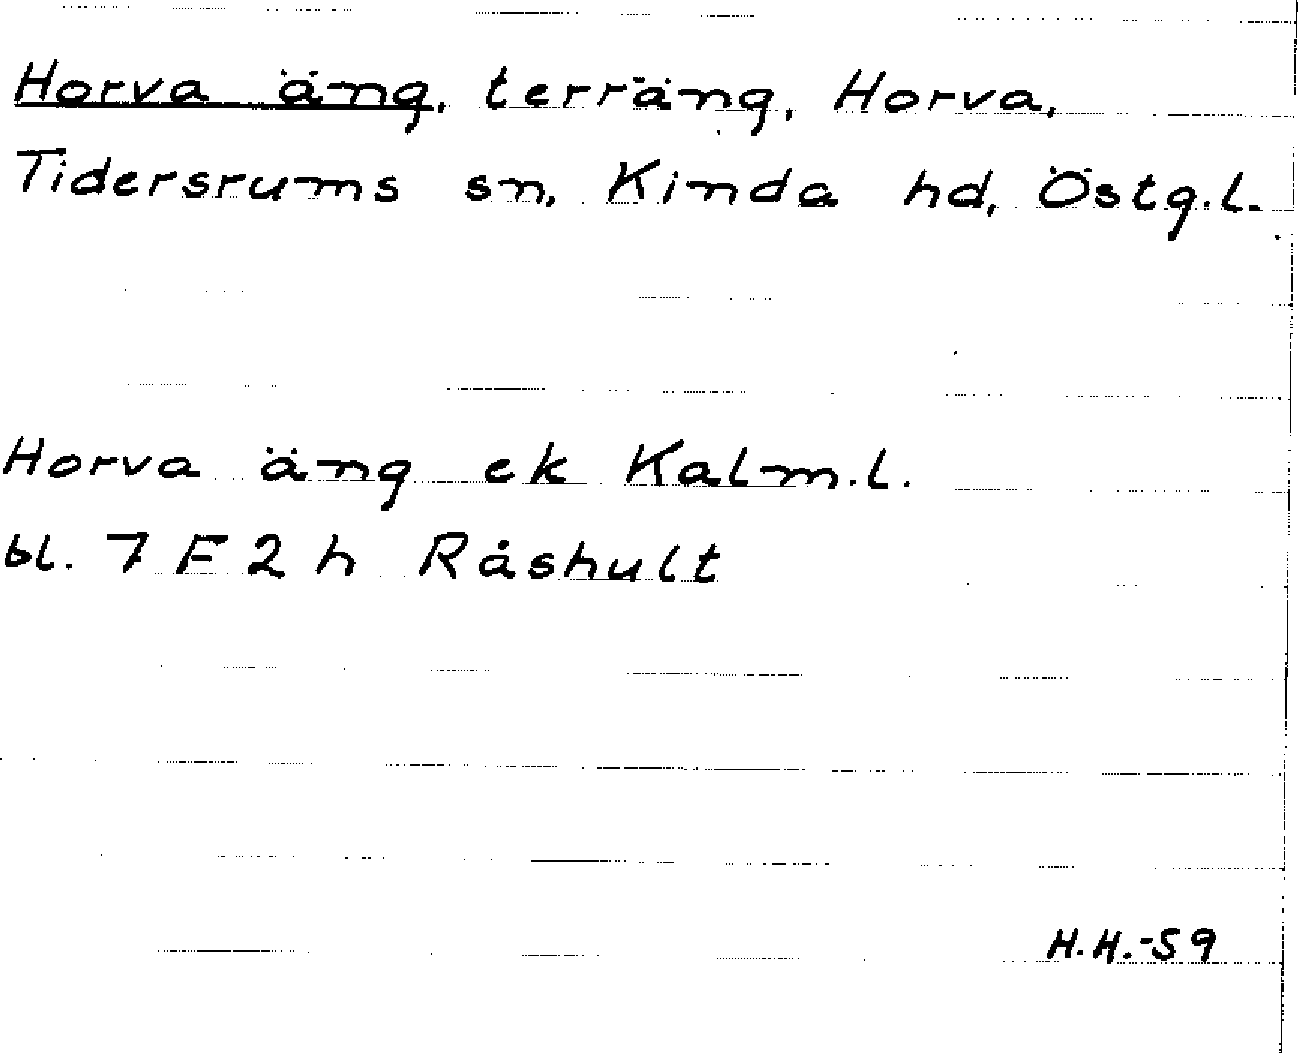 Horva äng, terräng, Horva,
Tidersrums sn, Kinda hd, Östg.l.
Horva äng ek Kalm.l.
bl. 7 F 2 h Råshult
H.H.-59